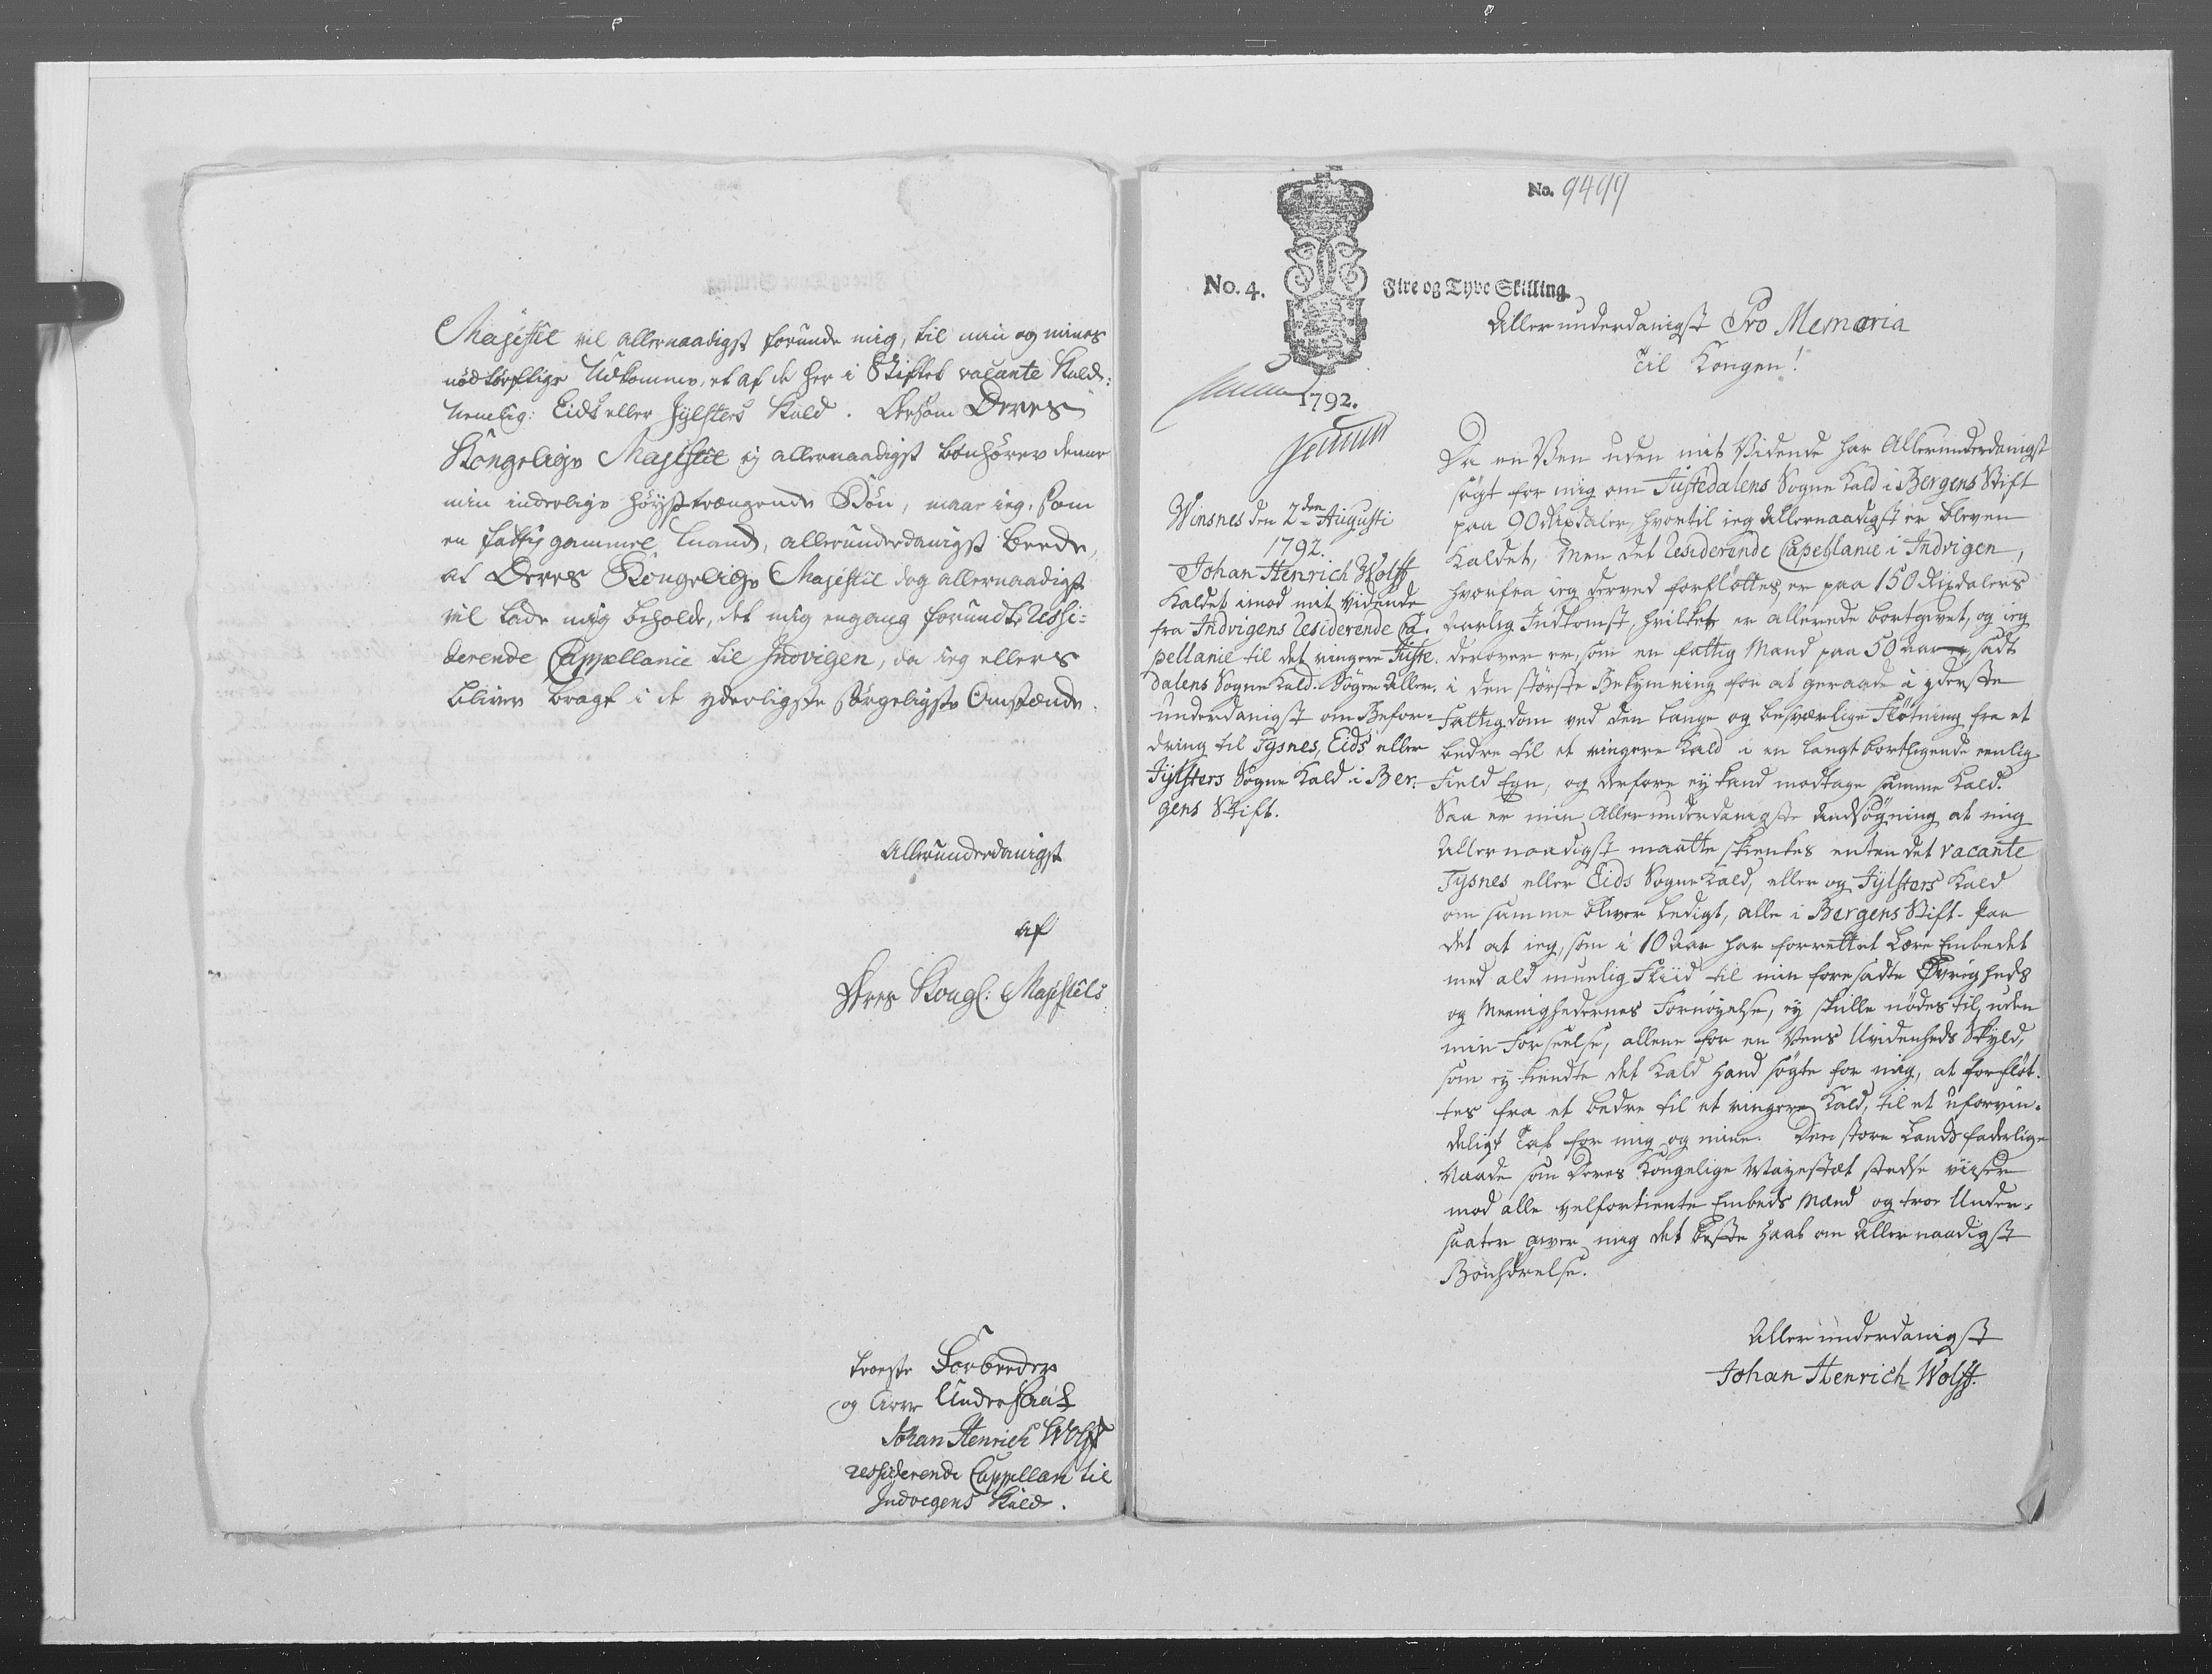 Majestet vil allernaadigst forunde mig, til min og mines
nödtörftige Udkomme, et af de her i Stiftet vacante Kald:
Nemlig: Eids eller Jylsters Kald. Dersom Deres
Kongelige Majestet ej allernaadigst bönhörer denne
min inderlige höystrængende Bön, maae ieg, som
en fattig gammel Mand, allerunderdanigst beede,
at Deres Kongelige Majestet dog allernaadigst
vil lade mig beholde, det mig engang forundte ressi-
derende Cappellanie til Indvigen, da ieg ellers
bliver bragt i de yderligste sörgeligste Omstænde.
Allerunderdanigst
af
Deres Kongl: Majestets
troeste Forbeeder
og Arve Undersaat
Johan Henrich Wolff
ressiderende Cappellan til
Indvigens Kald.
No. 9499
No. 4.
Fire og Tyve Skilling.
1792.
Allerunderdanigst Pro Memoria
Til Kongen!
Winsnes den 2den Augusti
1792.
Johan Henrich Wolff
Kaldet imod mit Vidende
fra Indvigens Residerende Ca-
pellanie til det ringere Juste-
dalens Sogne Kald. Söger Aller-
underdanigst om Befor-
dring til Tysnes, Eids eller
Jylsters Sogne Kald i Ber-
gens Stift.
Da en Ven uden mit Vidende har Allerunderdanigst
sögt for mig om Justedalens Sogne Kald i Bergens Stift
paa 90 Rixdaler, hvortil ieg Allernaadigst er bleven
Kaldet, Men det Residerende Capellanie i Indvigen,
hvorfra ieg derved forflöttes, er paa 150 Rixdalers
Aarlig Indkomst, hvilket er allerede bortgivet, og ieg
derover er, som en fattig Mand paa 50 Aar, sadt
i den störste Bekymring for at geraade i yderste
Fattigdom ved den lange og besværlige Flötning fra et
bedre til et ringere Kald i en langt bortligende eenlig
Field Egn, og derfore ej kand modtage samme Kald.
Saa er min Allerunderdanigste Ansögning at mig
Allernaadigst maatte skienkes enten det vacante
Tysnes eller Eids Sogne Kald, eller og Jylsters Kald
om samme bliver ledigt, alle i Bergens Stift. Paa
det at ieg, som i 10 Aar har forrettet Lære Embedet
med ald muelig Fliid til min foresadte Øvrigheds
og Meenighedernes Fornöyelse, ej skulle nödes til, uden
min Forseelse, allene for en Vens Uvidenheds Skyld,
som ej kiendte det Kald hand sögte for mig, at forflöt-
tes fra et bedre til et ringere Kald, til et uforvin-
deligt Tab for mig og mine. Den store Landsfaderlige
Naade som Deres Kongelige Mayestæt stedse viiser
mod alle velfortiente Embeds Mænd og troe Under-
saater giver mig det beste Haab om Allernaadigst
Bönhörelse.
Allerunderdanigst
Johan Henrich Wolff.